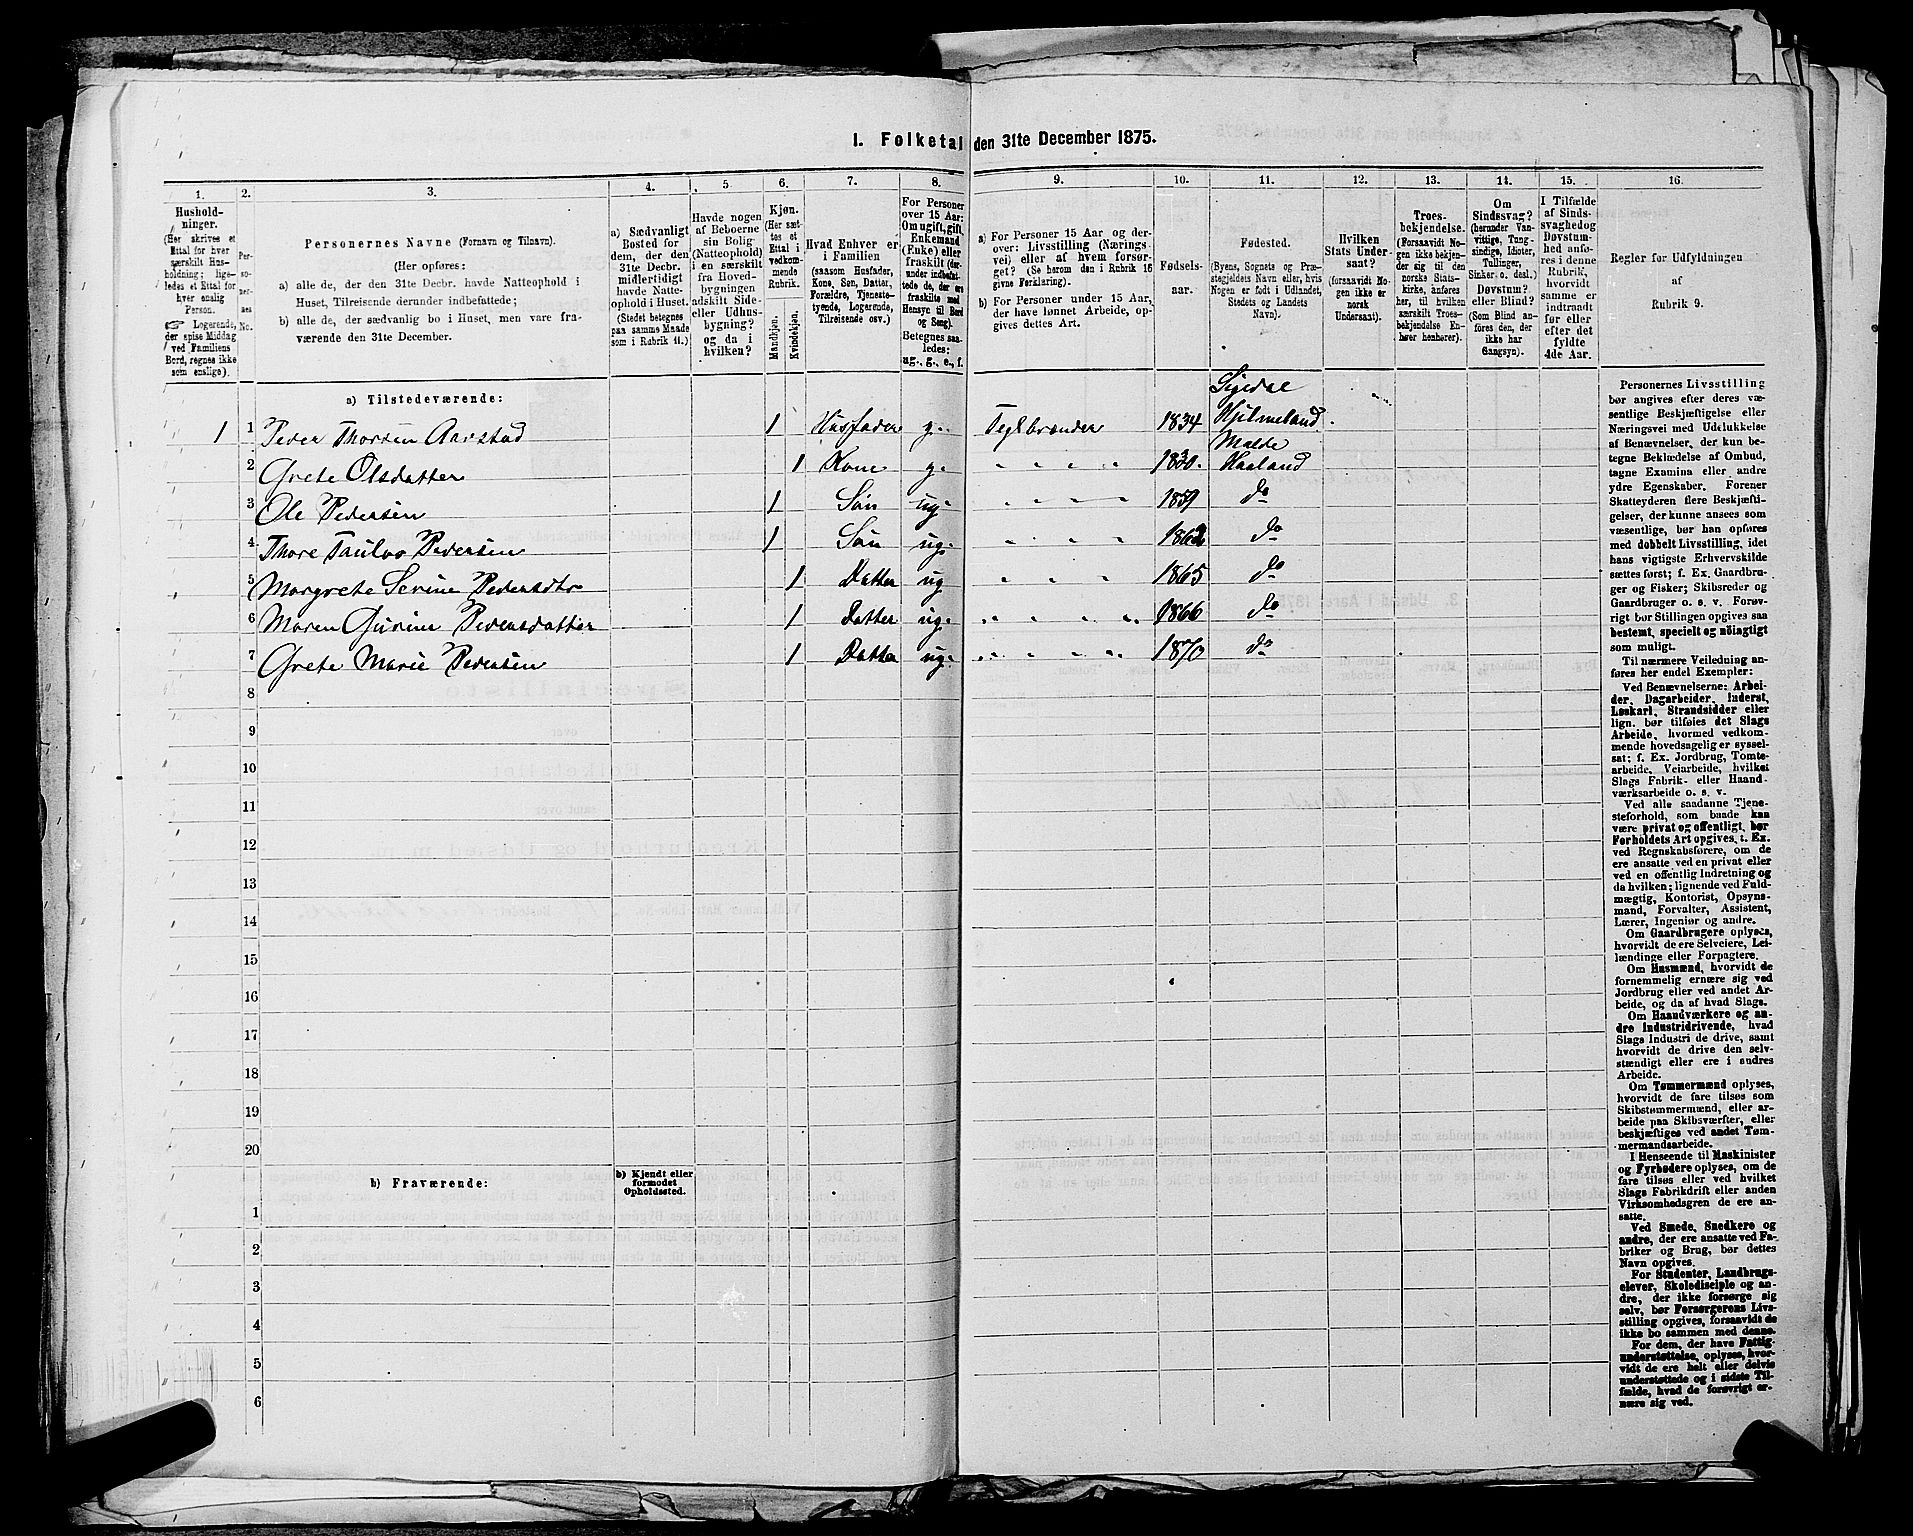 I. Folketal den 31te December 1875.
1. 2. 3. 4. 5 6. 7. 8. 9. 10. 11. 12. 13. 14. 15. 16.
Hushold-
ninger.
(Her skrives et
Ettal for hver
særskilt Hus-
holdning; lige-
ledes et Ettal for
hver enslig
Person.
☞ Logerende,
der spise Middag
ved Familiens
Bord, regnes ikke
som enslige).
Per-
so-
ner-
nes
No.
Personernes Navne (Fornavn og Tilnavn).
(Her opføres:
a) alle de, der den 31te Decbr. havde Natteophold i
Huset, Tilreisende derunder indbefattede;
b) alle de, der sædvanlig bo i Huset, men vare fra-
værende den 31te December.
a) Sædvanligt
Bosted for
dem, der den
31te Decbr.
midlertidigt
havde Natte-
ophold i Huset.
(Stedet betegnes
paa samme Maade
som i Rubrik 11.)
Havde nogen
af Beboerne
sin Bolig
(Natteophold)
i en særskilt
fra Hoved-
bygningen
adskilt Side-
eller Udhus-
bygning?
og da i
hvilken?
Kjøn.
(Her sæt-
tes et
Ettal i
vedkom-
mende
Rubrik.
Mandkjøn.
Kvindekjøn.
Hvad Enhver er
i Familien
(saasom Husfader,
Kone, Søn, Datter,
Forældre, Tjeneste-
tyende, Logerende,
Tilreisende osv.)
For Personer
over 15 Aar:
Om ugift, gift,
Enkemand
(Enke) eller
fraskilt (der-
under indbefat-
tede de, der ere
fraskilte med
Hensyn til Bord
og Seng).
Betegnes saa-
ledes:
ug., g., e., f.
a) For Personer 15 Aar og der-
over: Livsstilling (Nærings-
vei) eller af hvem forsør-
get? (Se herom den i Rubrik 16
givne Forklaring).
b) For Personer under 15 Aar,
der have lønnet Arbeide, op-
gives dettes Art.
Fødsels-
aar.
Fødested.
(Byens, Sognets og Præ-
stegjeldets Navn eller, hvis
Nogen er født i Udlandet,
Stedets og Landets
Navn).
Hvilken
Stats Under-
saat?
(forsaavidt No-
gen ikke er
norsk
Undersaat).
Troes-
bekjendelse.
(Forsaavidt No-
gen ikke bekjen-
der sig til den
norske Stats-
kirke, anføres
her, til hvilken
særskilt Troes-
bekjendelse En-
hver henhører).
Om
Sindssvag?
(herunder Van-
vittige, Tung-
sindige, Idioter,
Tullinger,
Sinker o. desl.)
Døvstum?
eller Blind?
(Som Blind an-
føres den, der
ikke har
Gangsyn).
I Tilfælde
af Sinds-
svaghed og
Døvstum-
hed anfø-
res i denne
Rubrik,
hvorvidt
samme er
indtraadt
før eller
efter det
fyldte
4de Aar.
Regler for Udfyldningen
af
Rubrik 9.
a) Tilstedeværende:
Sigdal
1 1 Peder Thorsen Aarstad 1 Husfader g. Teglbrænder 1834 Hjelmeland
Malde
2 Grete Olsdatter 1 Kone g. " " " " 1830. Haaland
3 Ole Pedersen 1 Søn ug " " " 1859 do
4 Thore Paulus Pedersen 1 Søn ug. " " " " 1862 do
5 Margrete Serine Pedersdtr 1 Datter ug " " " " 1865 do
6 Maren Gurine Pedersdatter 1 Datter ug. " " " " 1866 do
7 Grete Marie Pedersen 1 Datter ug. " " " " 1870 do
8
9
10
11
12
13
14
15
16
17
18
19
20
b) Fraværende:
b) Kjendt eller
formodet
Opholdssted.
1
2
3
4
5
6
Personernes Livsstilling
bør angives efter deres væ-
sentlige Beskjæftigelse eller
Næringsvei med Udelukkelse
af Benævnelser, der kun be-
tegne Beklædelse af Ombud,
tagne Examina eller andre
ydre Egenskaber. Forener
Skatteyderen flere Beskjæfti-
gelser, der kunne ansees som
væsentlige, bør han opføres
med dobbelt Livsstilling, idet
hans vigtigste Erhvervskilde
sættes først; f. Ex. Gaardbru-
ger og Fisker; Skibsreder og
Gaardbruger o. s. v. Forøv-
rigt bør Stillingen opgives saa
bestemt, specielt og nöiagtigt
som muligt.
Til nærmere Veiledning an-
føres her endel Exempler:
Ved Benævnelserne: Arbei-
der, Dagarbeider, Inderst,
Løskarl, Strandsidder eller
lign. bør tilføies det Slags
Arbeide, hvormed vedkom-
mende hovedsagelig er syssel-
sat; f. Ex. Jordbrug, Tomte-
arbeide, Veiarbeide, hvilket
Slags Fabrik- eller Haand-
værksarbeide o. s. v.
Ved alle saadanne Tjene-
steforhold, som baade kan
være privat og offentligt, bør
Forholdets Art opgives, t. Ex.
ved Regnskabsførere, om de
ere ansatte ved en privat eller
ved en offentlig Indretning og
da hvilken; lignende ved Fuld-
mægtig, Kontorist, Opsyns-
mand, Forvalter, Assistent,
Lærer, Ingeniør og andre.
Om Gaardbrugere oplyses,
hvorvidt de ere Selveiere, Lei-
lændinge eller Forpagtere.
Om Husmænd, hvorvidt de
fornemmelig ernære sig ved
Jordbrug eller ved andet Ar-
beide, og da af hvad Slags.
Om Haandværkere og an-
dre Industridrivende, hvad
Slags Industri de drive, samt
hvorvidt de drive den selv-
stændigt eller ere i andres
Arbeide.
Om Tømmermænd oplyses,
hvorvidt de fare tilsøs som
Skibstømmermænd, eller ar-
beide paa Skibsværfter, eller
beskjæftiges ved andet Tøm-
mermandsarbeide.
I Henseende til Maskinister
og Fyrbødere oplyses, om de
fare tilsøs eller ved hvilket
Slags Fabrikdrift eller anden
Virksomhedsgren de ere an-
satte.
Ved Smede, Snedkere og
andre, der ere ansatte ved Fa-
briker og Brug, bør dettes
Navn opgives.
For Studenter, Landbrugs-
elever, Skoledisciple og an-
dre, der ikke forsørge sig
selv, bør Forsørgerens Livs-
stilling opgives, forsaavidt de
ikke bo sammen med denne.
For dem, der have Fattig-
understøttelse, oplyses, hvor-
vidt de ere helt eller delvis
understøttede og i sidste Til-
fælde, hvad de forøvrigt er-
nære sig ved.